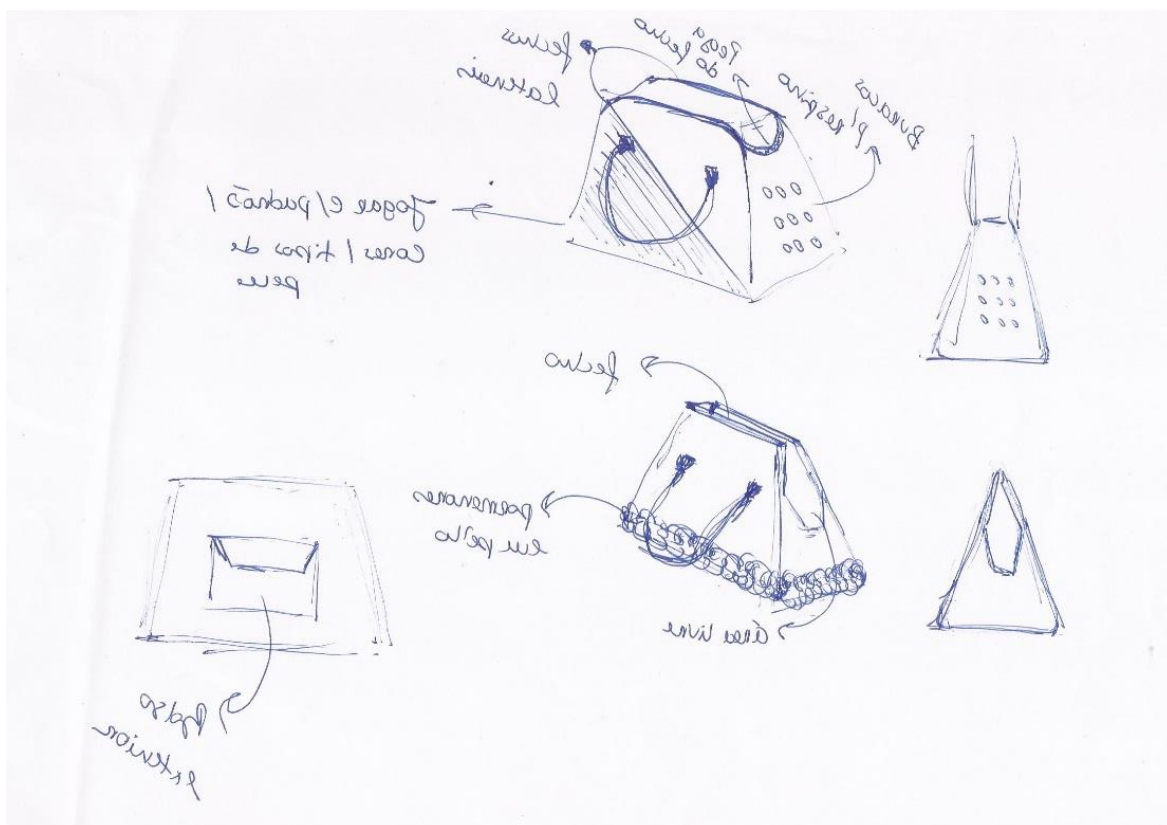 fechos
laterais
Pega
do fecho
Buracos
p/ respiro
Jogar c/ padrões /
cores / tipos de
pele
fecho
pormenores
em pêlo
área livre
Bolso
exterior